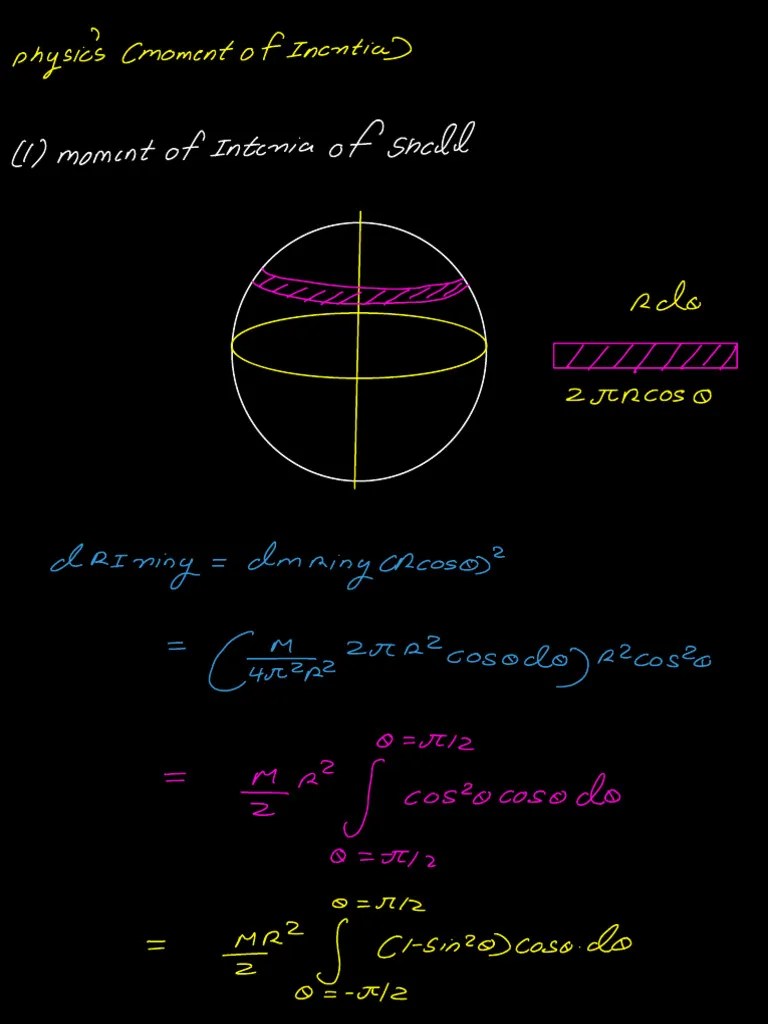 physics (moment of Inertia)
(1) moment of Intenia of shell
R dθ
2πR cos θ
dRI ring = dm Ring (R cosθ)²
= (M/4π²R² 2πR² cosθdθ) R² cos²θ
θ = π/2
= M/2 R² ∫ cos²θ cosθ dθ
θ = π/2
θ = π/2
= MR²/2 ∫ (1-sin²θ) cosθ. dθ
θ = -π/2